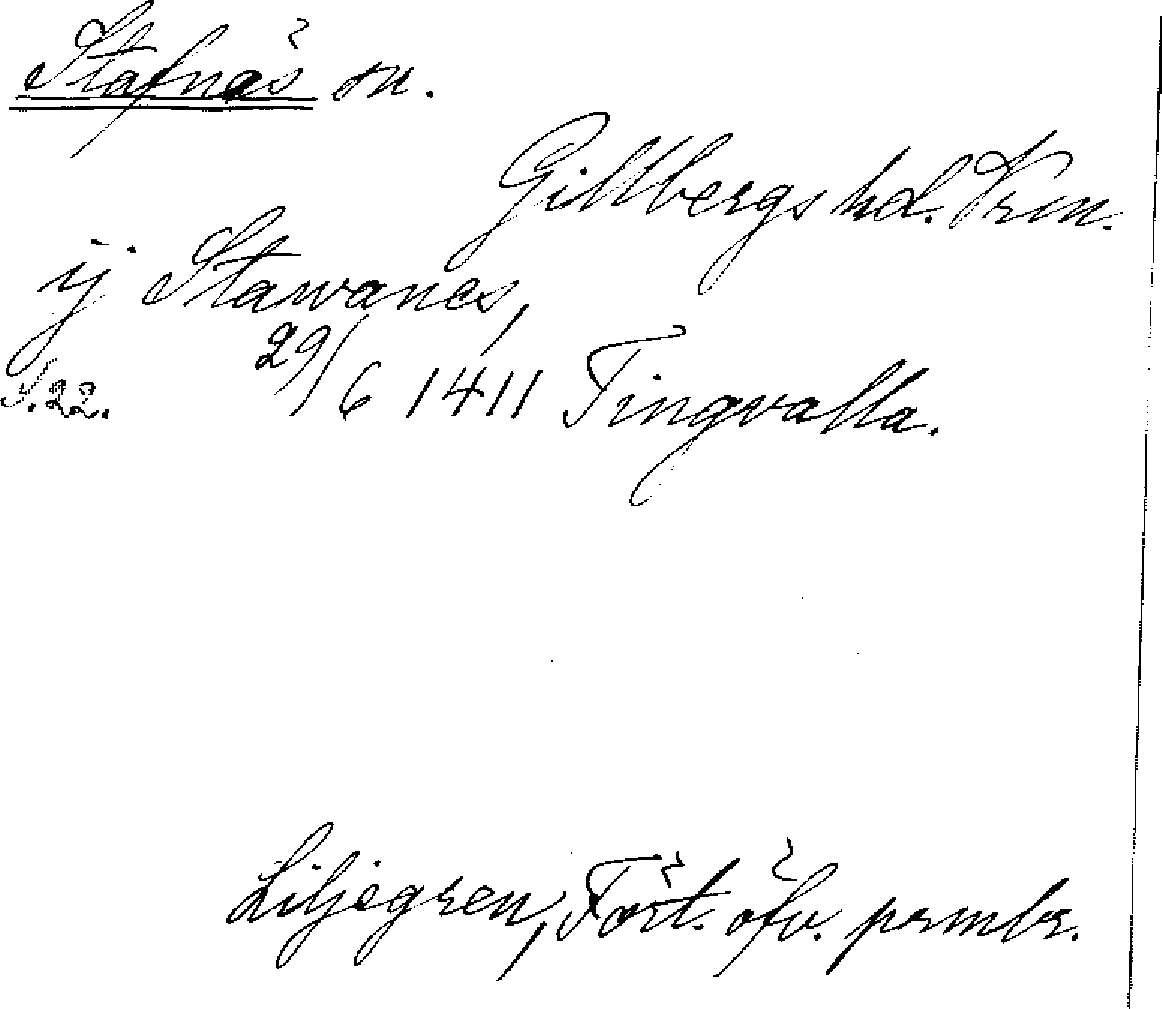 Stafnäs sn.
Gillbergs hd. Vrm.
ij Stawanes,
S. 22. 29/6 1411 Tingvalla.
Liljegren, Fört. öfv. prmbr.